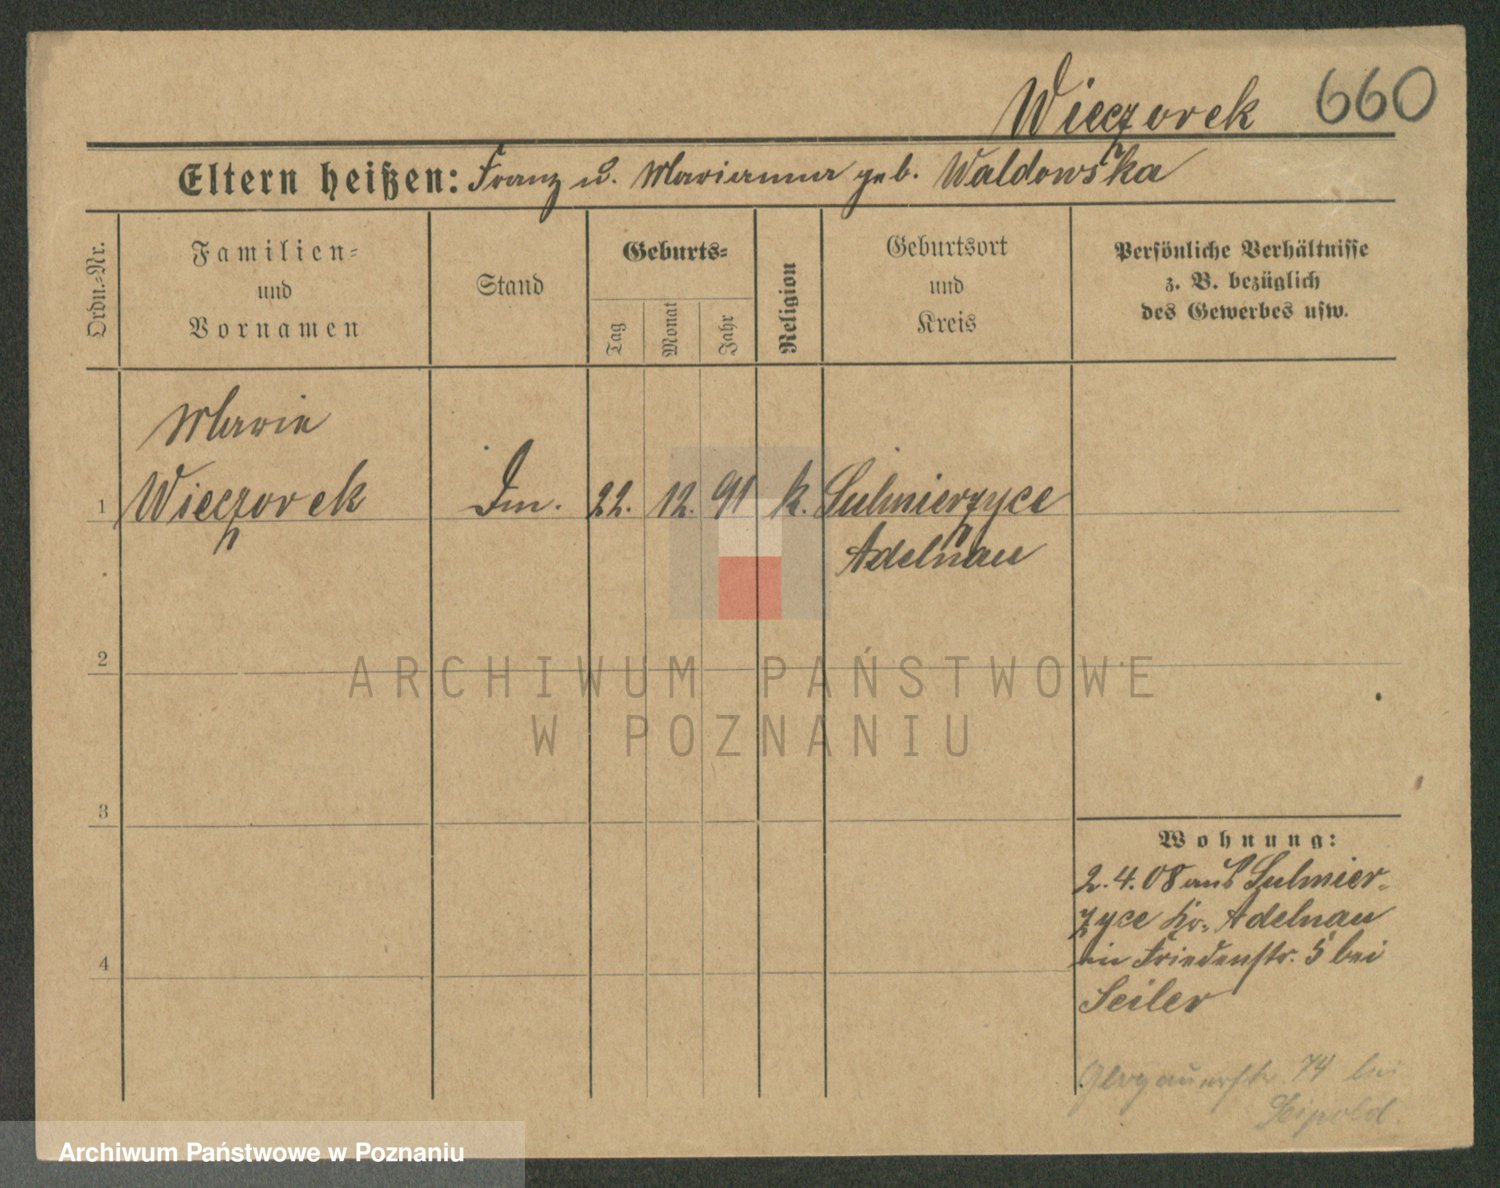 Wieczorek 660
Eltern heißen: Franz u. Marianna geb. Waldowska
Ordn.=Nr.
Familien=
und
Vornamen
Stand
Geburts=
Tag
Monat
Jahr
Religion
Geburtsort
und
Kreis
Persönliche Verhältnisse
z. B. bezüglich
des Gewerbes usw.
Marie
1 Wieczorek Dm. 22. 12. 91 k. Sulmierzyce
Adelnau
2
ARCHIWUM PAŃSTWOWE
W POZNANIU
3
Wohnung:
2. 4. 08 aus Sulmier-
zyce Kr. Adelnau
in Friedenstr. 5 bei
4
Seiler
Glogauerstr. 74 bei
Leipold
Archiwum Państwowe w Poznaniu